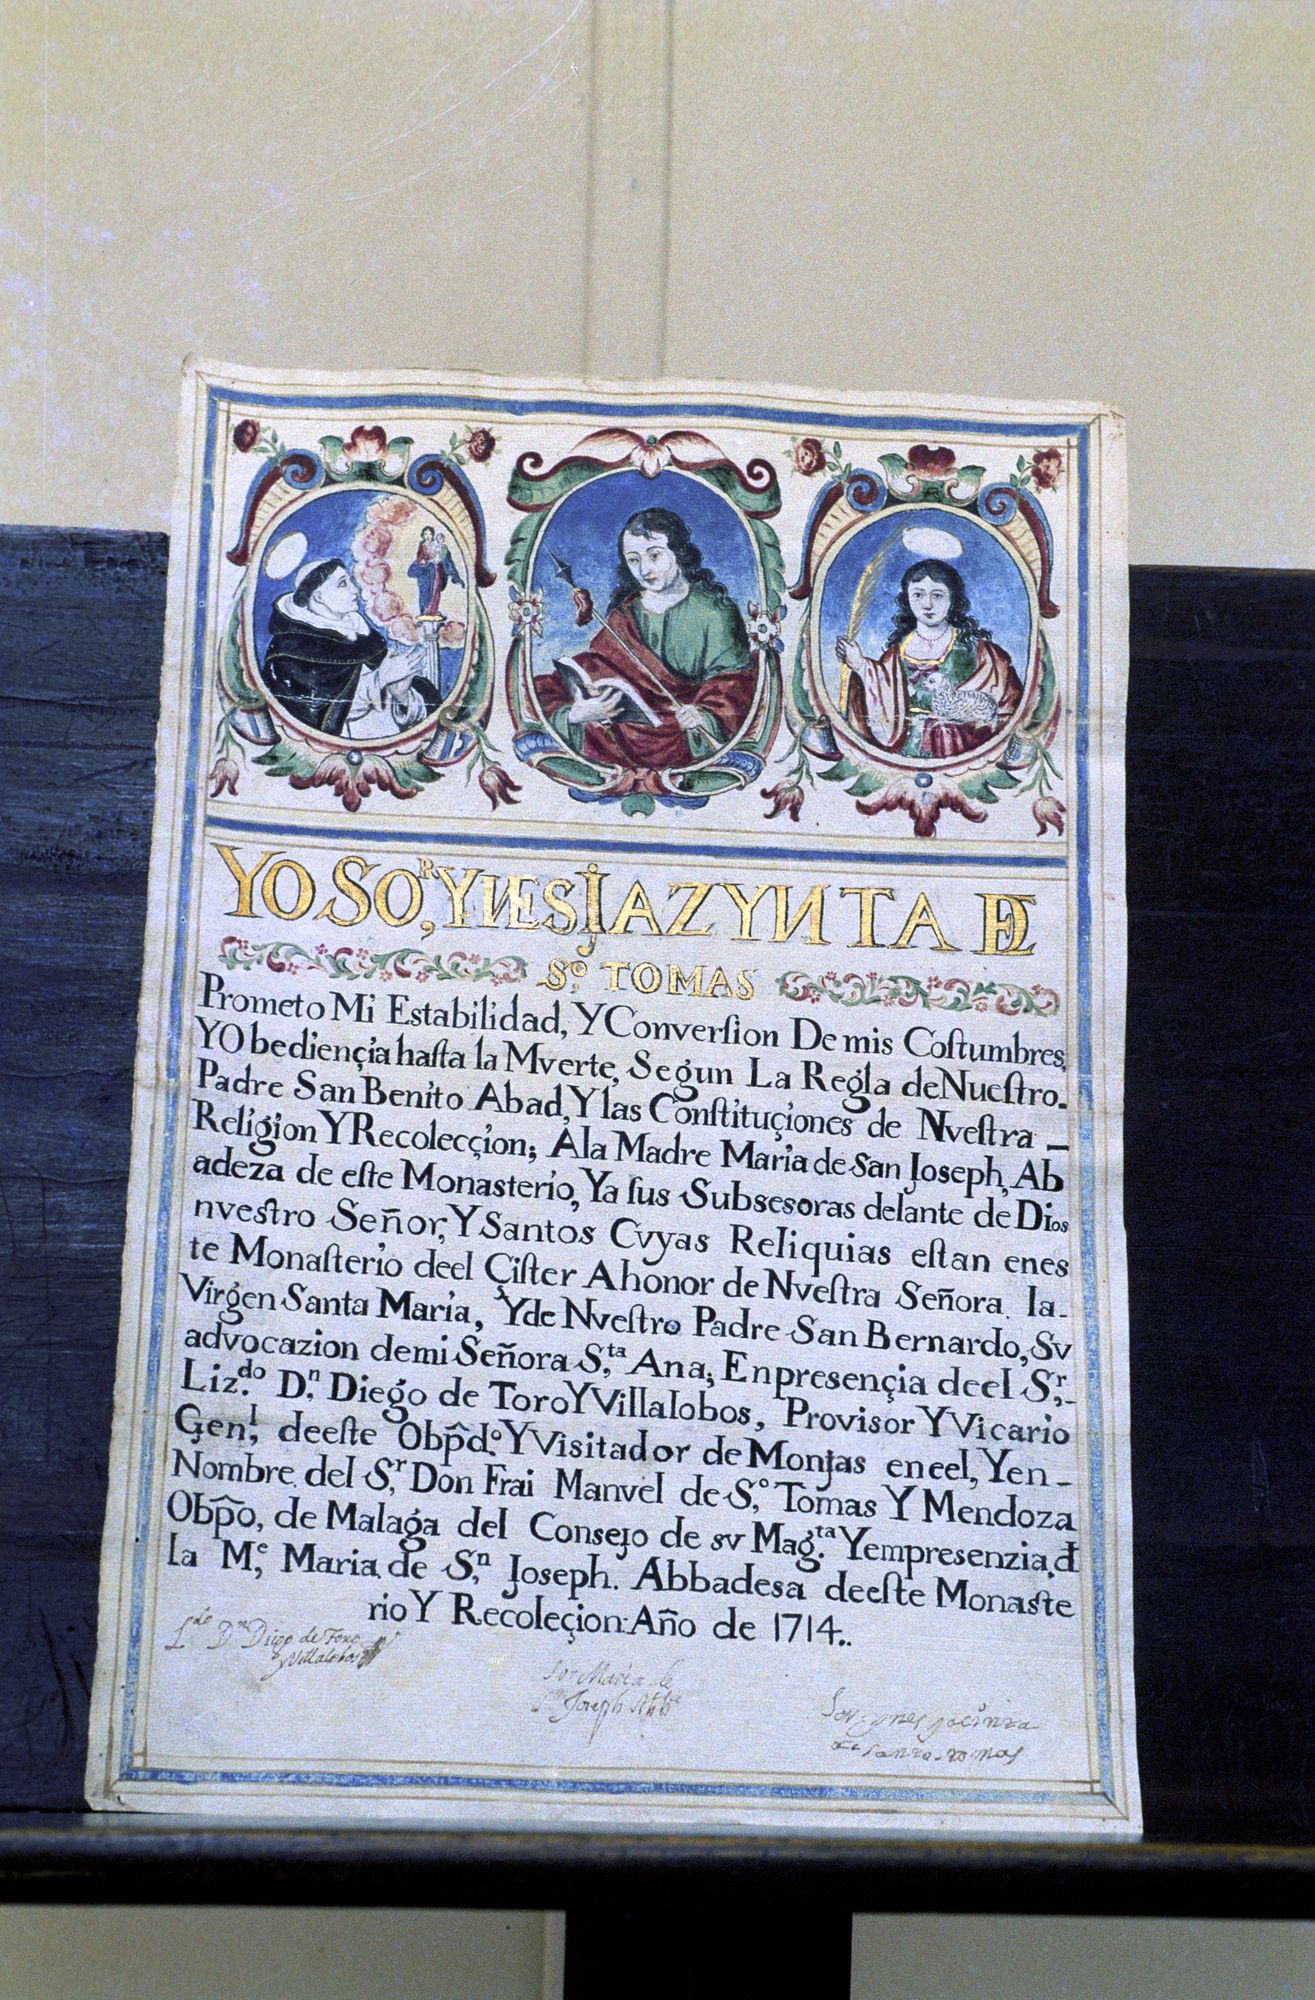 YO SOR, YNES JAZYNTA DE
So. TOMAS
Prometo Mi Estabilidad, Y Converſion De mis Coſtumbres,
YO bediençia haſta la Mverte, Segun La Regla de Nueſtro.
Padre San Benito Abad, Y las Conſtituçiones de Nveſtra _
Religion Y Recolecçion; A la Madre Maria de San Joseph, Ab
adeza de eſte Monasterio, Y a ſus Subsesoras delante de Dios
nvestro Señor, Y Santos Cvyas Reliquias eſtan en es
te Monaſterio de el Çiſter A honor de Nveſtra Señora la.
Virgen Santa Maria, Y de Nveſtro Padre San Bernardo, Sv
advocazion de mi Señora S,ta Ana; En presençia de el Sr,-
Liz.do D,n Diego de Toro Y Villalobos, Provisor Y Vicario
Gen,l de eſte Obp̂do. Y Visitador de Monjas en eel, Y en -
Nombre del S,r Don Frai Manvel de S,o Tomas Y Mendoza
Obp̂o, de Malaga del Consejo de sv Mag.ta Y em presenzia, đ
la Me, Maria de S,n Joseph. Abbadesa de eſte Monaste
rio Y Recoleçion: Año de 1714..
Ldo Dn Diego de Toro
y Villalobos
Sor Maria de
Sn Joseph Abbe
Sor ynes jacinta
de santo tomas